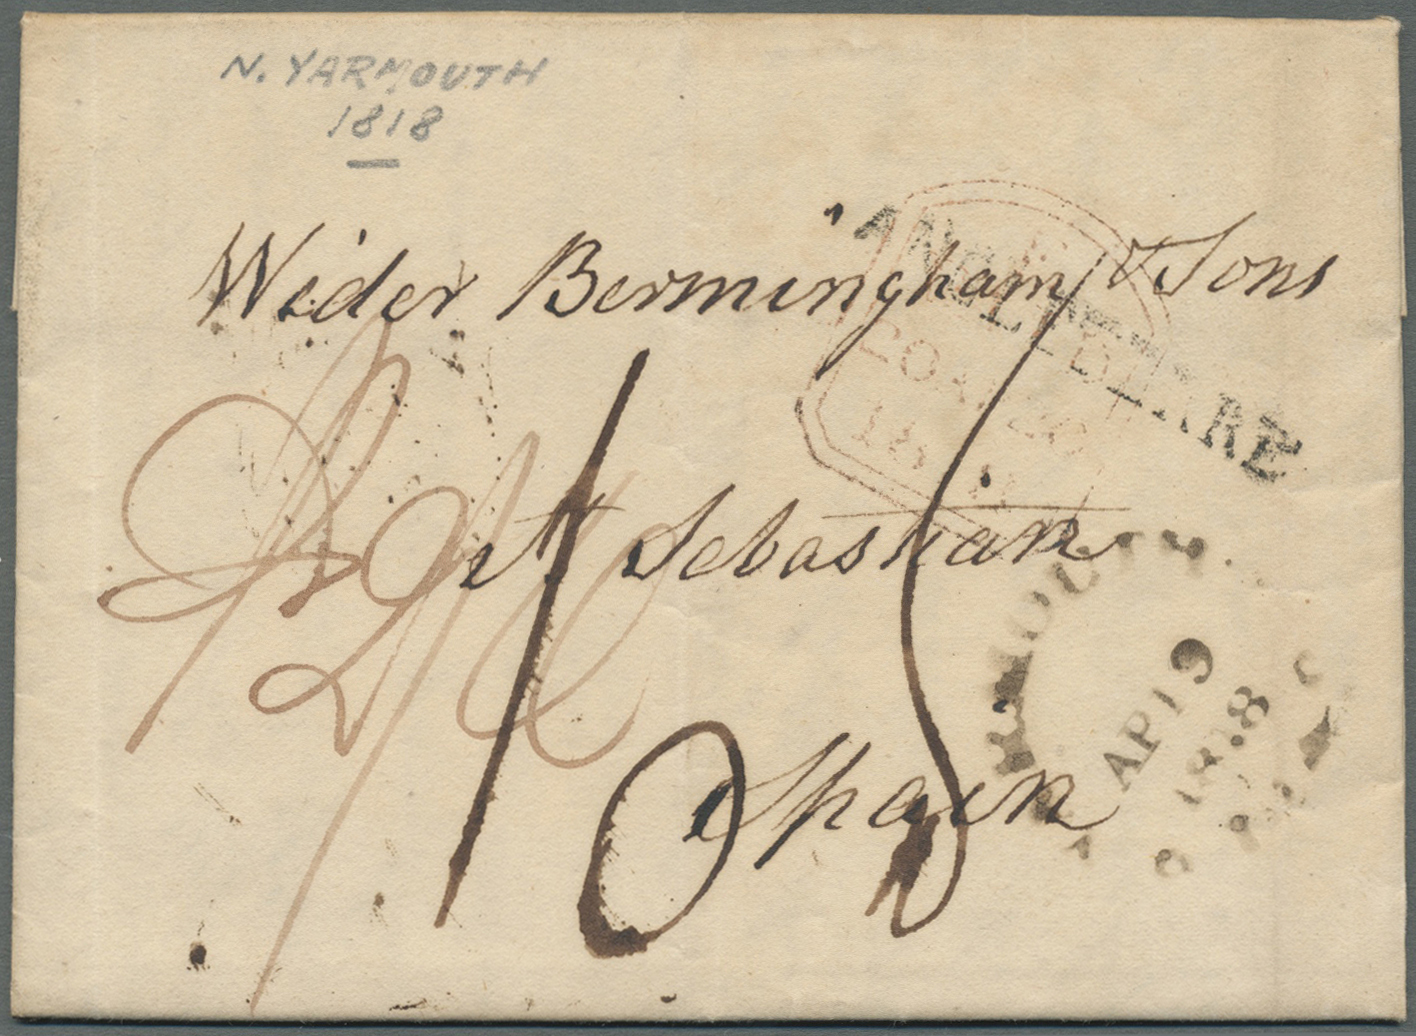 N. YARMOUTH
1818
Wider Bermingham & Sons
ANGLETERRE
St Sebastian
Spain
AP 19
1818